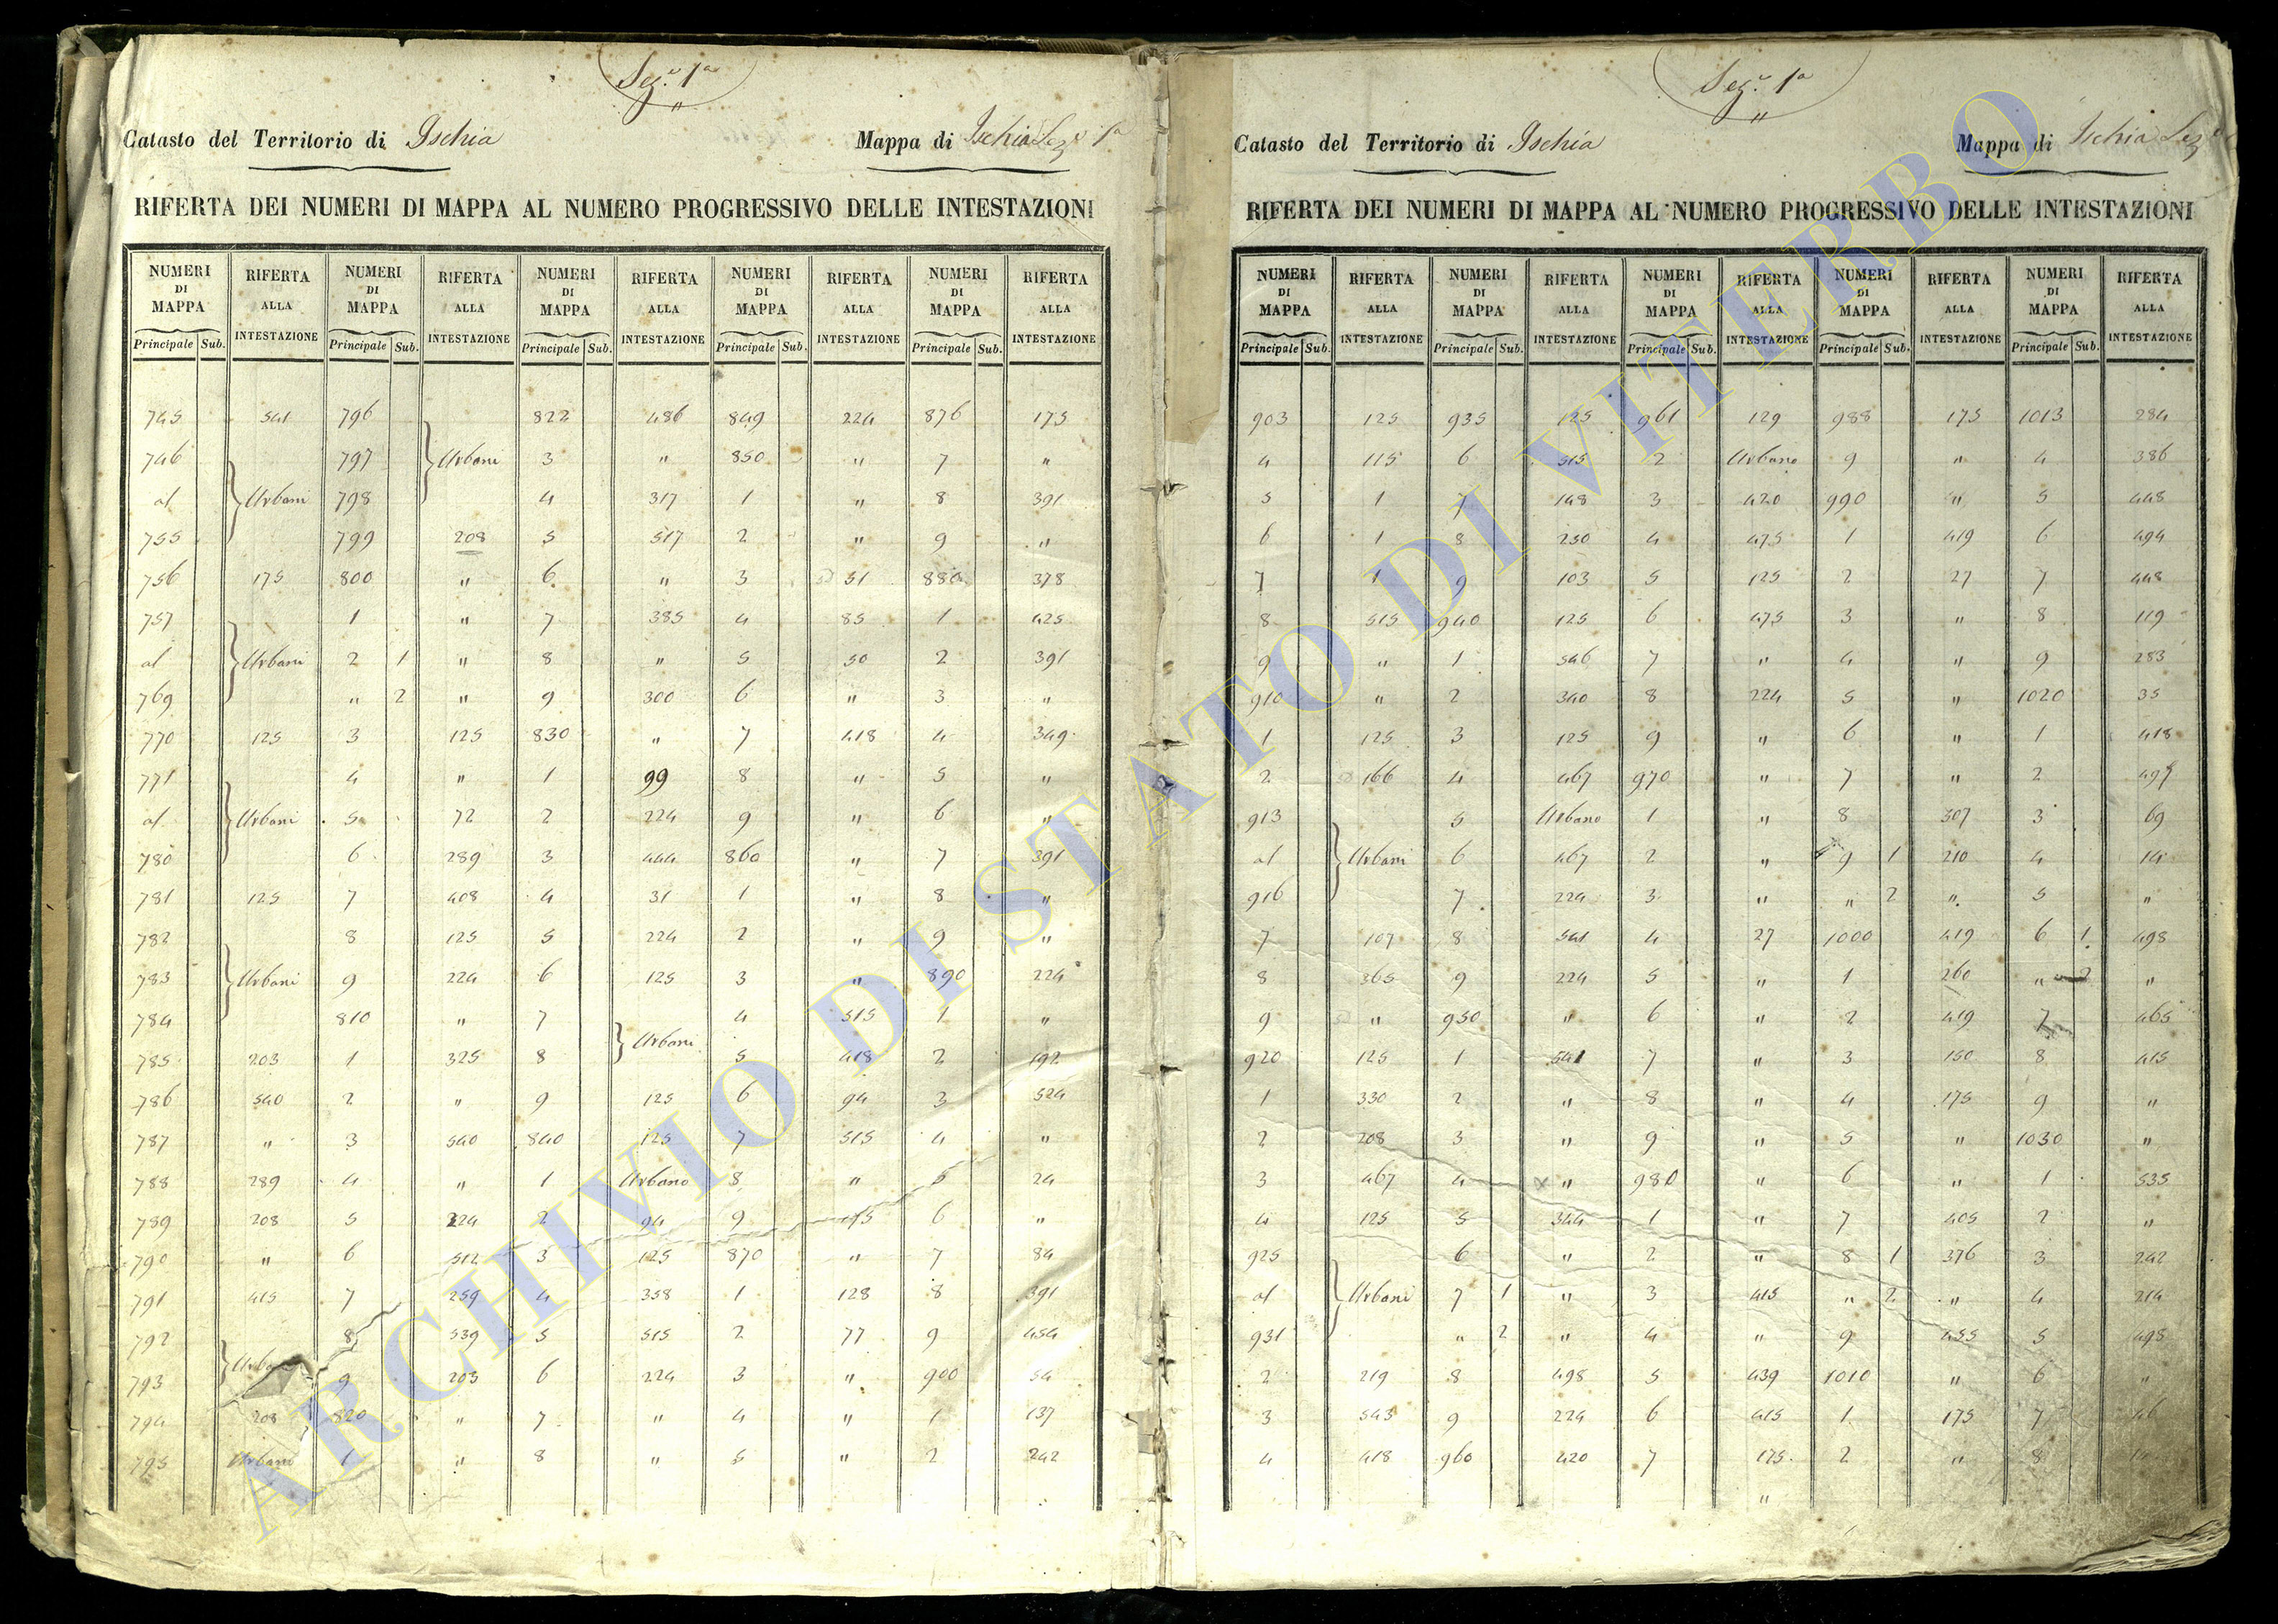 Sez.e 1a
Catasto del Territorio di Ischia Mappa di Ischia Sez.e 1a
RIFERTA DEI NUMERI DI MAPPA AL NUMERO PROGRESSIVO DELLE INTESTAZIONI
NUMERI DI MAPPA RIFERTA ALLA INTESTAZIONE NUMERI DI MAPPA RIFERTA ALLA INTESTAZIONE NUMERI DI MAPPA RIFERTA ALLA INTESTAZIONE NUMERI DI MAPPA RIFERTA ALLA INTESTAZIONE NUMERI DI MAPPA RIFERTA ALLA INTESTAZIONE
Principale Sub. Principale Sub. Principale Sub. Principale Sub. Principale Sub.
745 541 796 822 486 849 224 876 175
746 797 Urbani 3 " 850 " 7 "
al Urbani 798 4 317 1 " 8 391
755 799 208 5 517 2 " 9 "
756 175 800 " 6 " 3 51 880 378
757 1 " 7 385 4 85 1 425
al Urbani 2 1 " 8 " 5 50 2 391
769 " 2 " 9 300 6 " 3 "
770 125 3 125 830 " 7 418 4 349
771 4 " 1 99 8 " 5 "
al Urbani 5 72 2 224 9 " 6 "
780 6 289 3 444 860 " 7 391
781 125 7 408 4 31 1 " 8 "
782 8 125 5 224 2 " 9 "
783 Urbani 9 224 6 125 3 " 890 224
784 810 " 7 Urbani 4 515 1 "
785 203 1 325 8 5 418 2 192
786 540 2 " 9 125 6 94 3 524
787 " 3 540 840 125 7 515 4 "
788 289 4 " 1 Urbano 8 " 5 24
789 208 5 224 2 94 9 175 6 "
790 " 6 512 3 125 870 " 7 84
791 415 7 259 4 358 1 128 8 391
792 8 539 5 515 2 77 9 454
793 9 203 6 224 3 " 900 54
794 208 820 " 7 " 4 " 1 137
795 Urbano 1 " 8 " 5 " 2 242
Sez.e 1a
Catasto del Territorio di Ischia Mappa di Ischia Sez.e
RIFERTA DEI NUMERI DI MAPPA AL NUMERO PROGRESSIVO DELLE INTESTAZIONI
NUMERI DI MAPPA RIFERTA ALLA INTESTAZIONE NUMERI DI MAPPA RIFERTA ALLA INTESTAZIONE NUMERI DI MAPPA RIFERTA ALLA INTESTAZIONE NUMERI DI MAPPA RIFERTA ALLA INTESTAZIONE NUMERI DI MAPPA RIFERTA ALLA INTESTAZIONE
Principale Sub. Principale Sub. Principale Sub. Principale Sub. Principale Sub.
903 125 935 125 961 129 988 175 1013 284
4 115 6 515 2 Urbano 9 " 4 386
5 1 7 148 3 420 990 " 5 448
6 1 8 250 4 475 1 419 6 494
7 1 9 103 5 125 2 27 7 448
8 515 940 125 6 475 3 " 8 119
9 " 1 546 7 " 4 " 9 283
910 " 2 340 8 224 5 " 1020 35
1 125 3 125 9 " 6 " 1 418
2 166 4 467 970 " 7 " 2 497
913 5 Urbano 1 " 8 307 3 69
al Urbani 6 467 2 " 9 1 210 4 14
916 7 224 3 " " 2 " 5 "
7 107 8 541 4 27 1000 419 6 1 498
8 365 9 224 5 " 1 260 " 2 "
9 " 950 " 6 " 2 419 7 465
920 125 1 541 7 " 3 150 8 415
1 330 2 " 8 " 4 175 9 "
2 208 3 " 9 " 5 " 1030 "
3 467 4 " 980 " 6 " 1 535
4 125 5 344 1 " 7 405 2 "
925 6 " 2 " 8 1 376 3 242
al Urbani 7 1 " 3 415 " 2 " 4 214
931 " 2 " 4 " 9 455 5 498
2 219 8 498 5 439 1010 " 6 "
3 543 9 224 6 415 1 175 7 46
4 418 960 420 7 175 2 " 8
"
ARCHIVIO DI STATO DI VITERBO